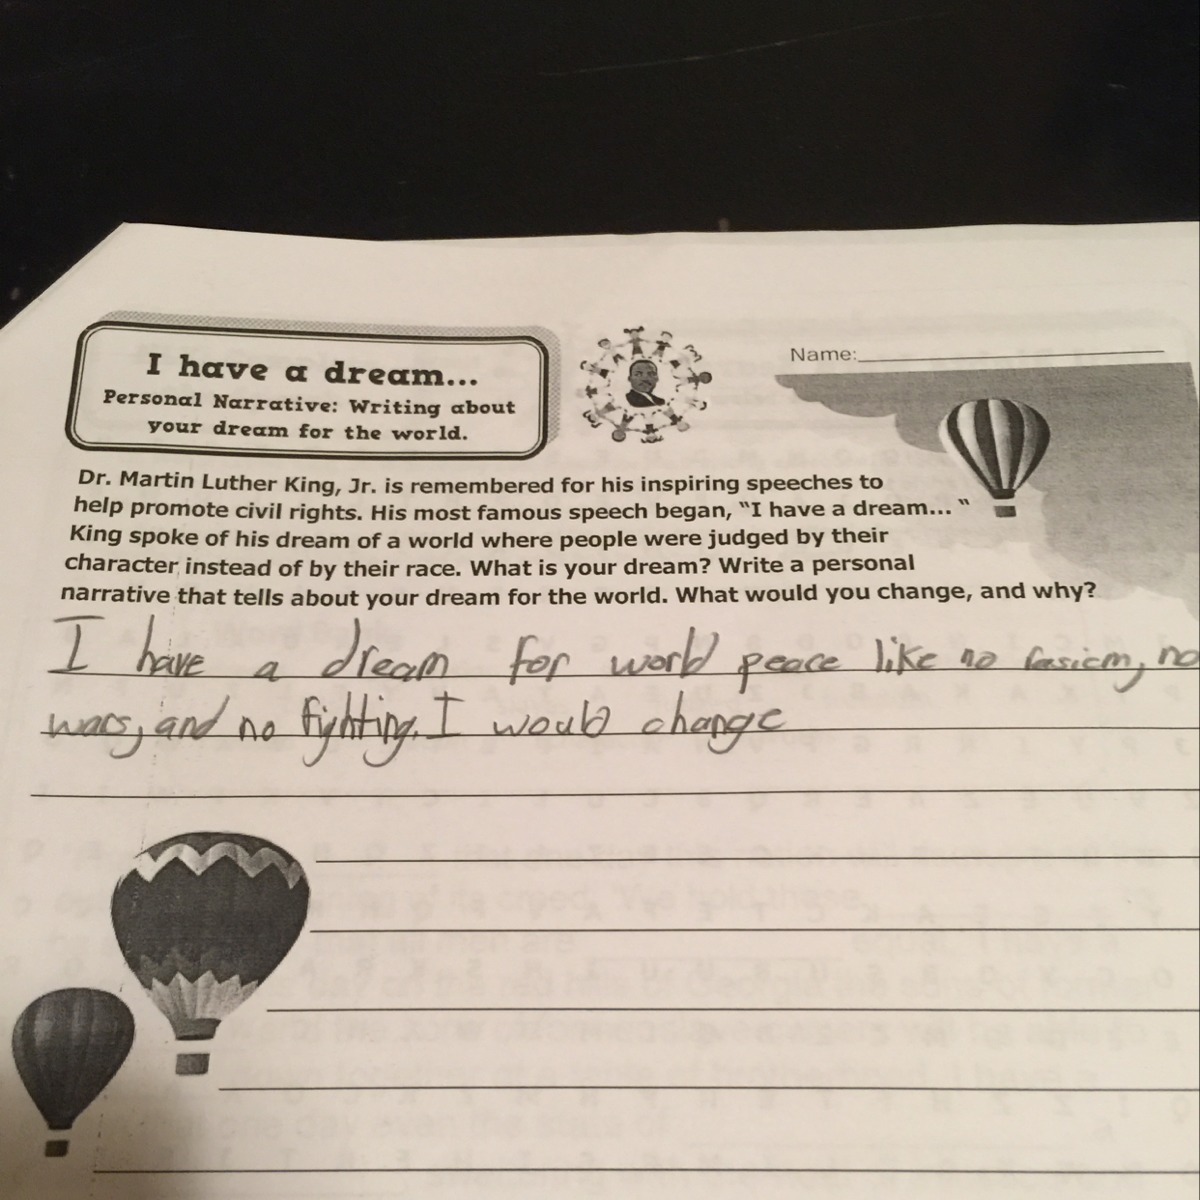 I have a dream...
Personal Narrative: Writing about
your dream for the world.
Name:
Dr. Martin Luther King, Jr. is remembered for his inspiring speeches to
help promote civil rights. His most famous speech began, “I have a dream... “
King spoke of his dream of a world where people were judged by their
character instead of by their race. What is your dream? Write a personal
narrative that tells about your dream for the world. What would you change, and why?
I have a dream for world peace like no rasicm, no
wars, and no fighting. I would change